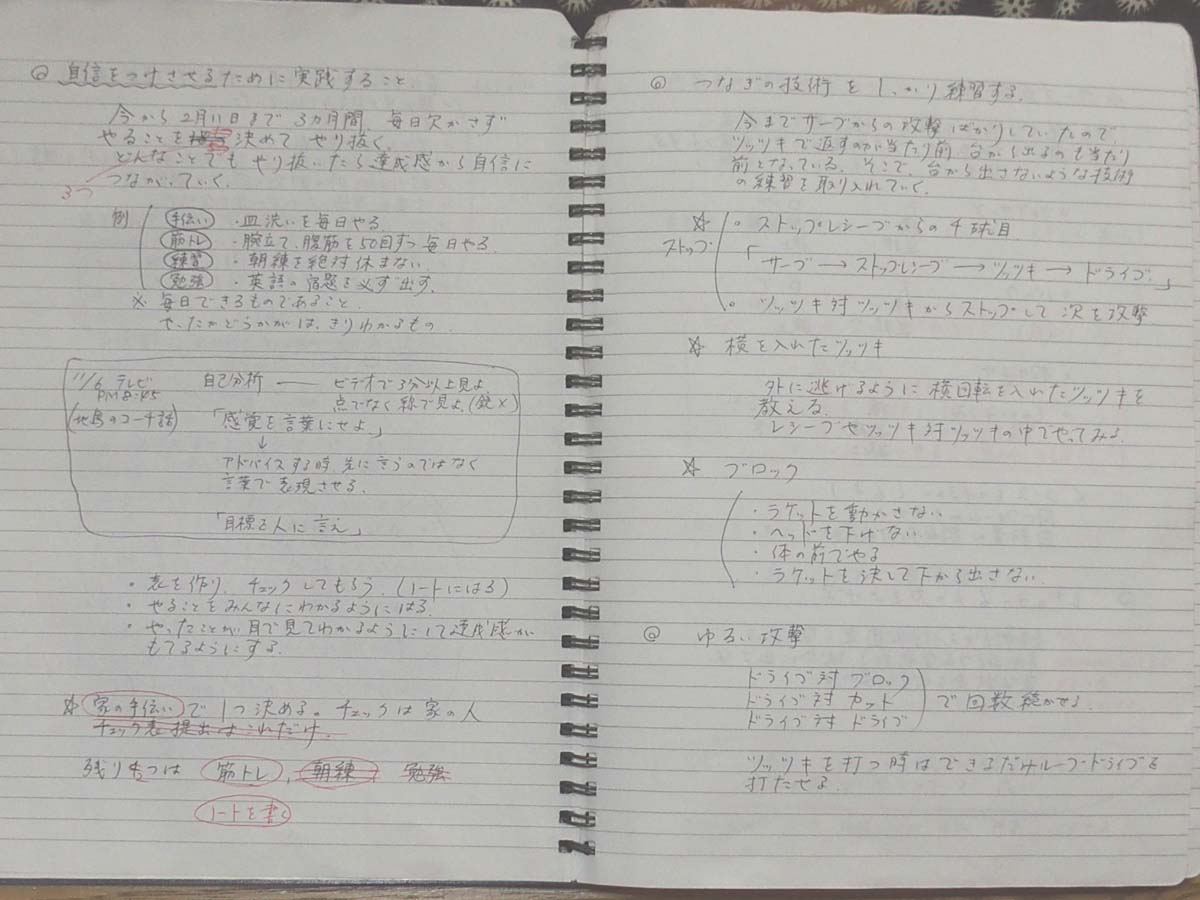 ◎ 自信をつけさせるために実践すること.
今から2月11日まで3ヵ月間、毎日欠かさず
やることを 決めて やり抜く.
どんなことでも やり抜いたら達成感から自信に
つながっていく.
3つ
例 手伝い ・皿洗いを毎日やる
筋トレ ・腕立て、腹筋を50回ずつ毎日やる.
練習 ・朝練を絶対休まない.
勉強 ・英語の宿題を必ず出す.
※ 毎日できるものであること.
やったかどうかがはっきりわかるもの.
11/6 テレビ 自己分析 ― ビデオで3分以上見よ
PM8:45 点でなく線で見よ.
のコーチ話) 「感覚を言葉にせよ」
↓
アドバイスする時、先に言うのではなく
言葉で表現させる.
「目標を人に言え」
・表を作り、チェックしてもらう. (ノートにはる)
・やることをみんなにわかるようにはる.
・やったことが目で見てわかるようにして達成感が
もてるようにする.
☆ 家の手伝いで1つ決める。チェックは家の人
チェック表提出はこれだけ.
残り つは 筋トレ, 朝練 勉強
ノートを書く
◎ つなぎの技術をしっかり練習する.
今までサーブからの攻撃ばかりしていたので、
ツッツキで返すのが当たり前 台から出るのも当たり
前となっている. そこで、台から出さないような技術
の練習を取り入れていく.
☆ ストップ 。ストップレシーブからの4球目
「サーブ → ストップレシーブ → ツッツキ → ドライブ」
。ツッツキ対ツッツキからストップして次を攻撃
☆ 横を入れたツッツキ
外に逃げるように横回転を入れたツッツキを
教える.
レシーブやツッツキ対ツッツキの中でやってみる.
☆ ブロック
・ラケットを動かさない
・ヘッドを下げない
・体の前でやる
・ラケットを決して下から出さない.
◎ ゆるい攻撃
ドライブ対ブロック
ドライブ対カット で回数続かせる.
ドライブ対ドライブ
ツッツキを打つ時はできるだけループドライブを
打たせる.